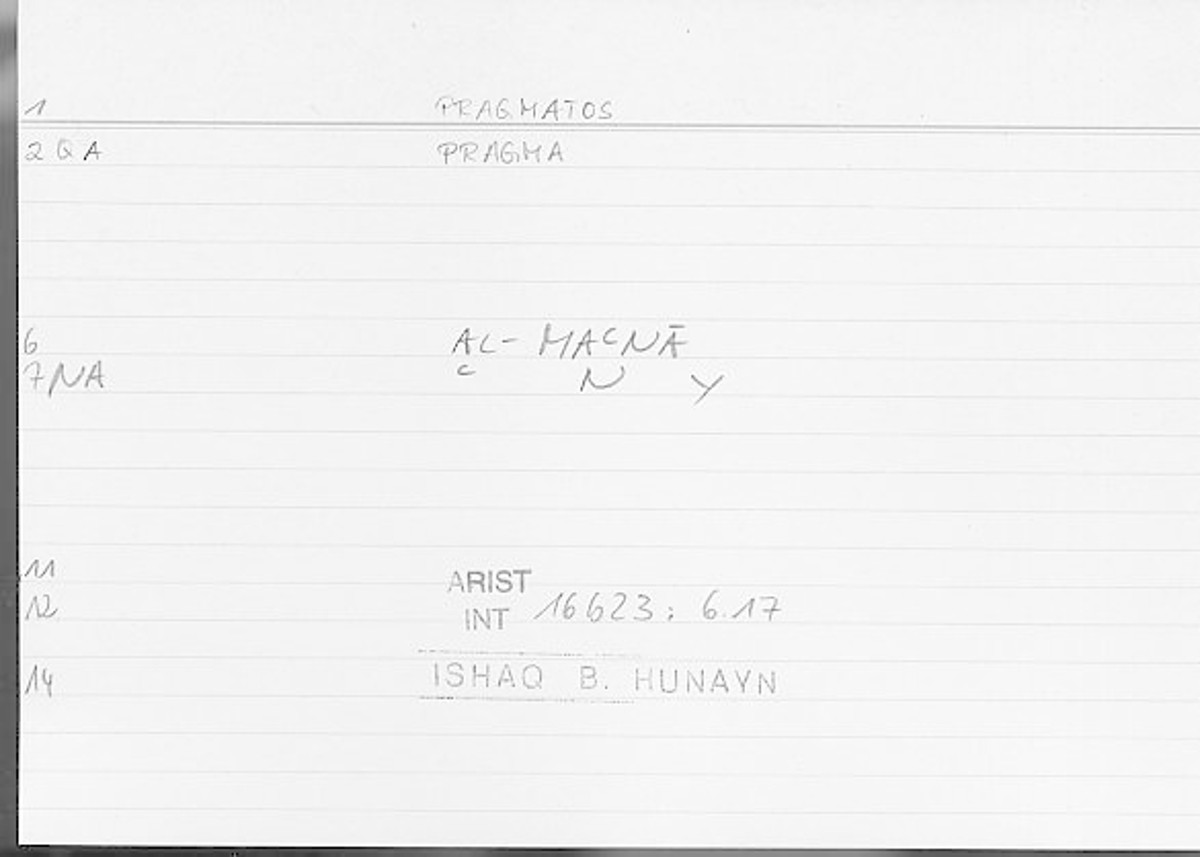 1 PRAGMATOS
2 Q A PRAGMA
6 AL-MAᶜNĀ
7 NA ᶜ N Y
11 ARIST
12 INT 16b23; 6.17
14 ISHAQ B. HUNAYN